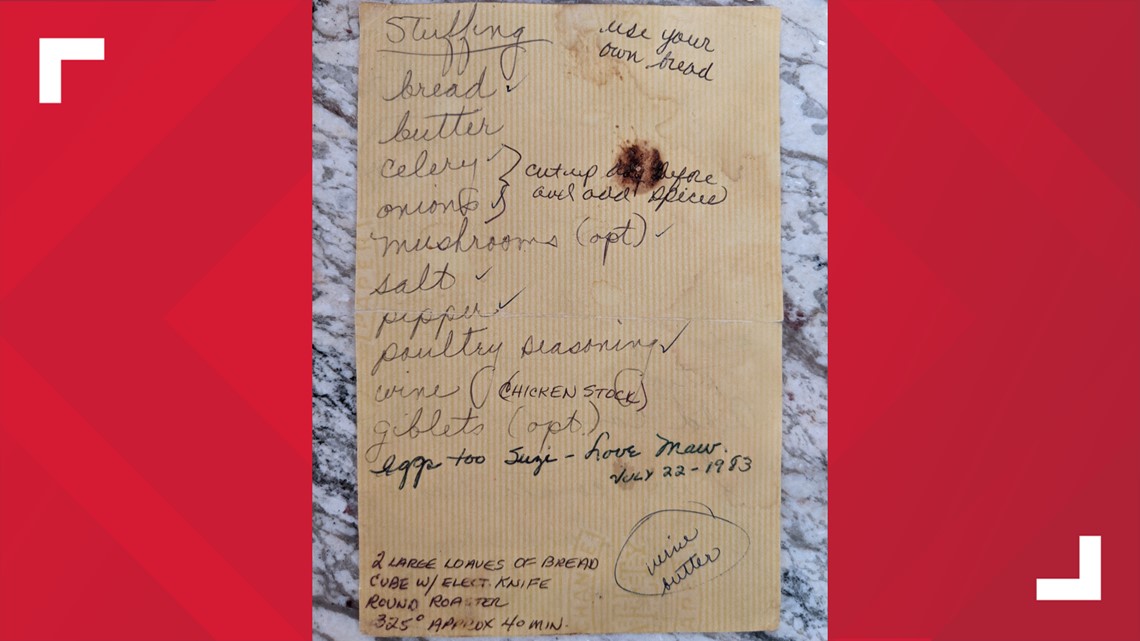 Stuffing
use your
own bread
bread ✓
butter
celery ✓
onions ✓
cut up day before
and add spices
mushrooms (opt) ✓
salt ✓
pepper ✓
poultry seasoning ✓
wine (CHICKEN STOCK)
giblets (opt.)
eggs too Suzi - Love Maw.
JULY 22-1983
wine
butter
2 LARGE LOAVES OF BREAD
CUBE W/ ELECT. KNIFE
ROUND ROASTER
325° APPROX 40 MIN.